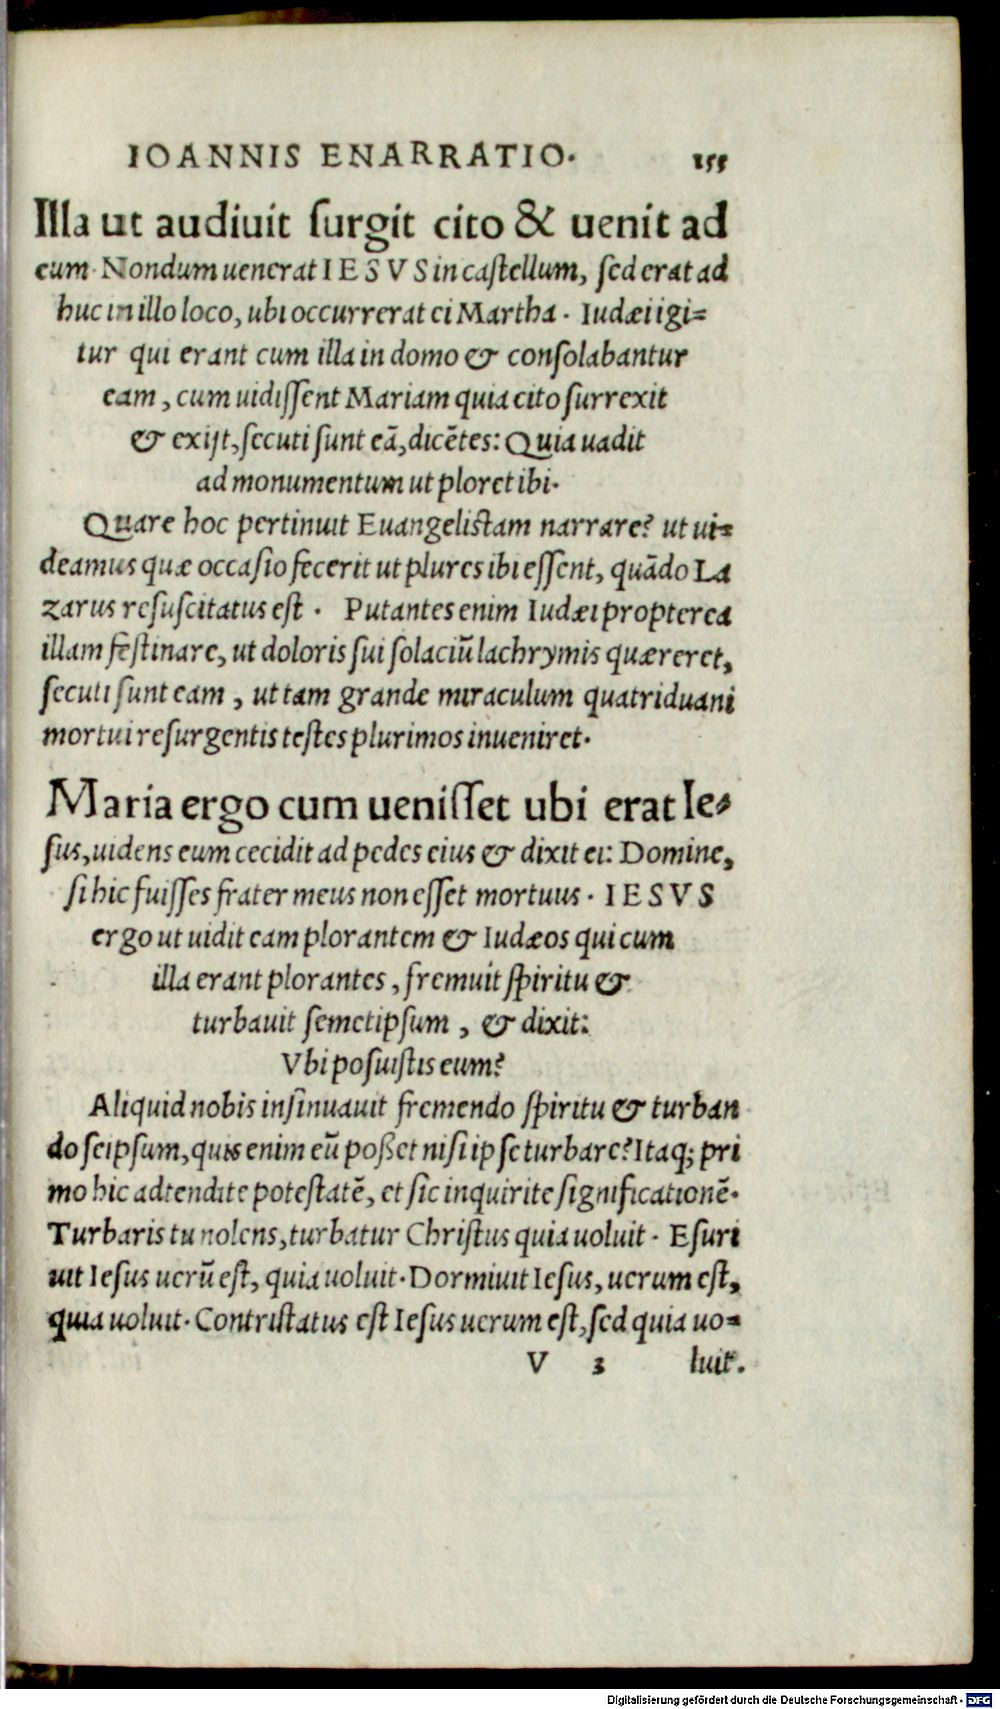 IOANNIS ENARRATIO. 155
Illa ut audiuit surgit cito & uenit ad
eum. Nondum uenerat IESVS in castellum, sed erat ad
huc in illo loco, ubi occurrerat ei Martha. Iudæi igi=
tur qui erant cum illa in domo & consolabantur
eam, cum uidissent Mariam quia cito surrexit
& exijt, secuti sunt eā, dicētes: Quia uadit
ad monumentum ut ploret ibi.
Quare hoc pertinuit Euangelistam narrare? ut ui=
deamus quæ occasio fecerit ut plures ibi essent, quādo La
zarus resuscitatus est. Putantes enim Iudæi propterea
illam festinare, ut doloris sui solaciū lachrymis quæreret,
secuti sunt eam, ut tam grande miraculum quatriduani
mortui resurgentis testes plurimos inueniret.
Maria ergo cum uenisset ubi erat Ie=
sus, uidens eum cecidit ad pedes eius & dixit ei: Domine,
si hic fuisses frater meus non esset mortuus. IESVS
ergo ut uidit eam plorantem & Iudæos qui cum
illa erant plorantes, fremuit spiritu &
turbauit semetipsum, & dixit:
Vbi posuistis eum?
Aliquid nobis insinuauit fremendo spiritu & turban
do seipsum, quis enim eū poßet nisi ipse turbare? Itaq; pri
mo hic adtendite potestatē, et sic inquirite significationē.
Turbaris tu nolens, turbatur Christus quia uoluit. Esuri
uit Iesus uerū est, quia uoluit. Dormiuit Iesus, uerum est,
quia uoluit. Contristatus est Iesus uerum est, sed quia uo=
V 3 luit.
Digitalisierung gefördert durch die Deutsche Forschungsgemeinschaft - DFG